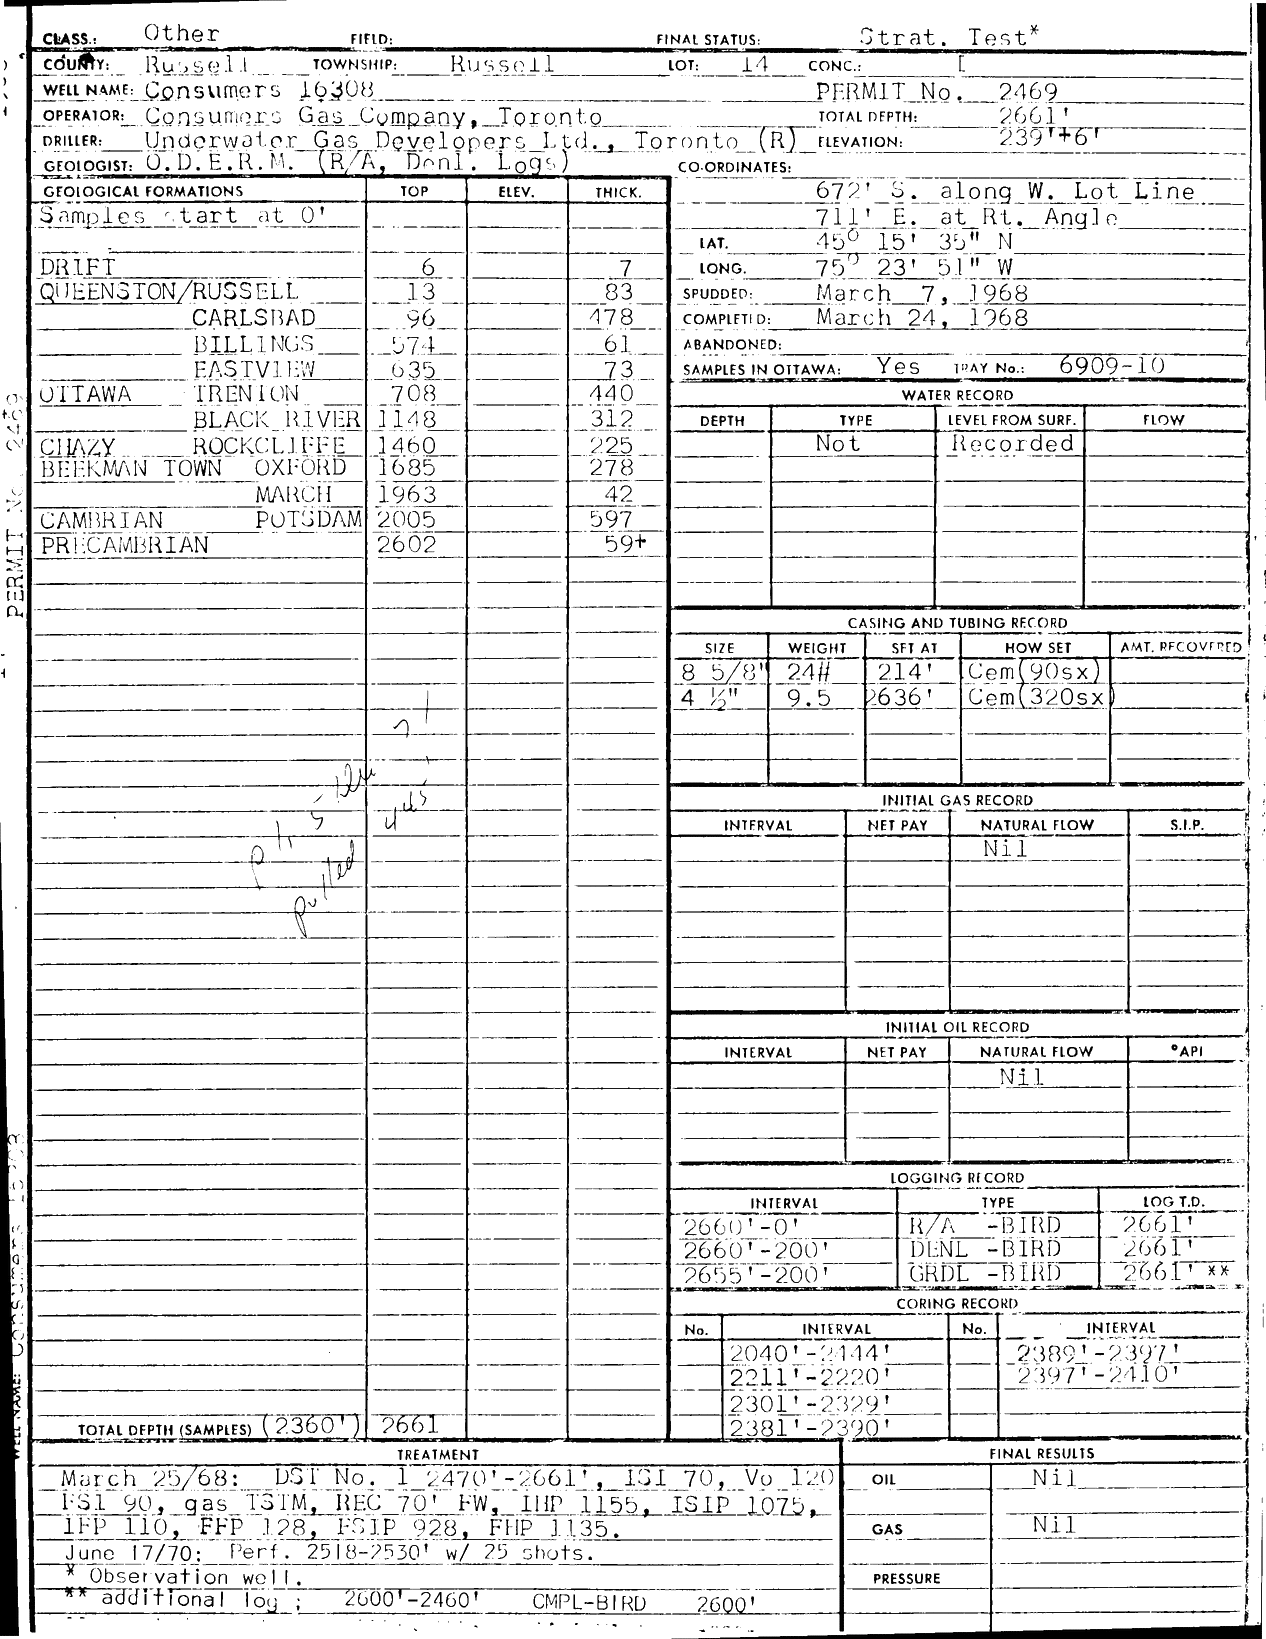 CLASS.: Other FIELD: FINAL STATUS: Strat. Test*
COUNTY: Russell TOWNSHIP: Russell LOT: 14 CONC.: I
WELL NAME: Consumers 16308 PERMIT No. 2469
OPERATOR: Consumers Gas Company, Toronto TOTAL DEPTH: 2661'
DRILLER: Underwater Gas Developers Ltd., Toronto (R) ELEVATION: 239'+6'
GEOLOGIST: O.D.E.R.M. (R/A, Denl. Logs) CO-ORDINATES:
GEOLOGICAL FORMATIONS TOP ELEV. THICK.
Samples start at 0'
DRIFT 6 7
QUEENSTON/RUSSELL 13 83
CARLSBAD 96 478
BILLINGS 574 61
EASTVIEW 635 73
OTTAWA TRENTON 708 440
BLACK RIVER 1148 312
CHAZY ROCKCLIFFE 1460 225
BEEKMAN TOWN OXFORD 1685 278
MARCH 1963 42
CAMBRIAN POTSDAM 2005 597
PRECAMBRIAN 2602 59+
pulled
445'
TOTAL DEPTH (SAMPLES) (2360') 2661
672' S. along W. Lot Line
711' E. at Rt. Angle
LAT. 45° 15' 35" N
LONG. 75° 23' 51" W
SPUDDED: March 7, 1968
COMPLETED: March 24, 1968
ABANDONED:
SAMPLES IN OTTAWA: Yes TRAY No.: 6909-10
WATER RECORD
DEPTH TYPE LEVEL FROM SURF. FLOW
Not Recorded
CASING AND TUBING RECORD
SIZE WEIGHT SET AT HOW SET AMT. RECOVERED
8 5/8" 24# 214' Cem(90sx)
4 ½" 9.5 2636' Cem(320sx)
INITIAL GAS RECORD
INTERVAL NET PAY NATURAL FLOW S.I.P.
Nil
INITIAL OIL RECORD
INTERVAL NET PAY NATURAL FLOW °API
Nil
LOGGING RECORD
INTERVAL TYPE LOG T.D.
2660'-0' R/A -BIRD 2661'
2660'-200' DENL -BIRD 2661'
2655'-200' GRDL -BIRD 2661' **
CORING RECORD
No. INTERVAL No. INTERVAL
2040'-2144' 2389'-2397'
2211'-2220' 2397'-2410'
2301'-2329'
2381'-2390'
TREATMENT
March 25/68: DST No. 1 2470'-2661', ISI 70, Vo 120
FSI 90, gas TSTM, REC 70' FW, IHP 1155, ISIP 1075,
IFP 110, FFP 128, FSIP 928, FHP 1135.
June 17/70: Perf. 2518-2530' w/ 25 shots.
* Observation well.
** additional log ; 2600'-2460' CMPL-BIRD 2600'
FINAL RESULTS
OIL Nil
GAS Nil
PRESSURE
PERMIT No. 2469
WELL NAME: Consumers